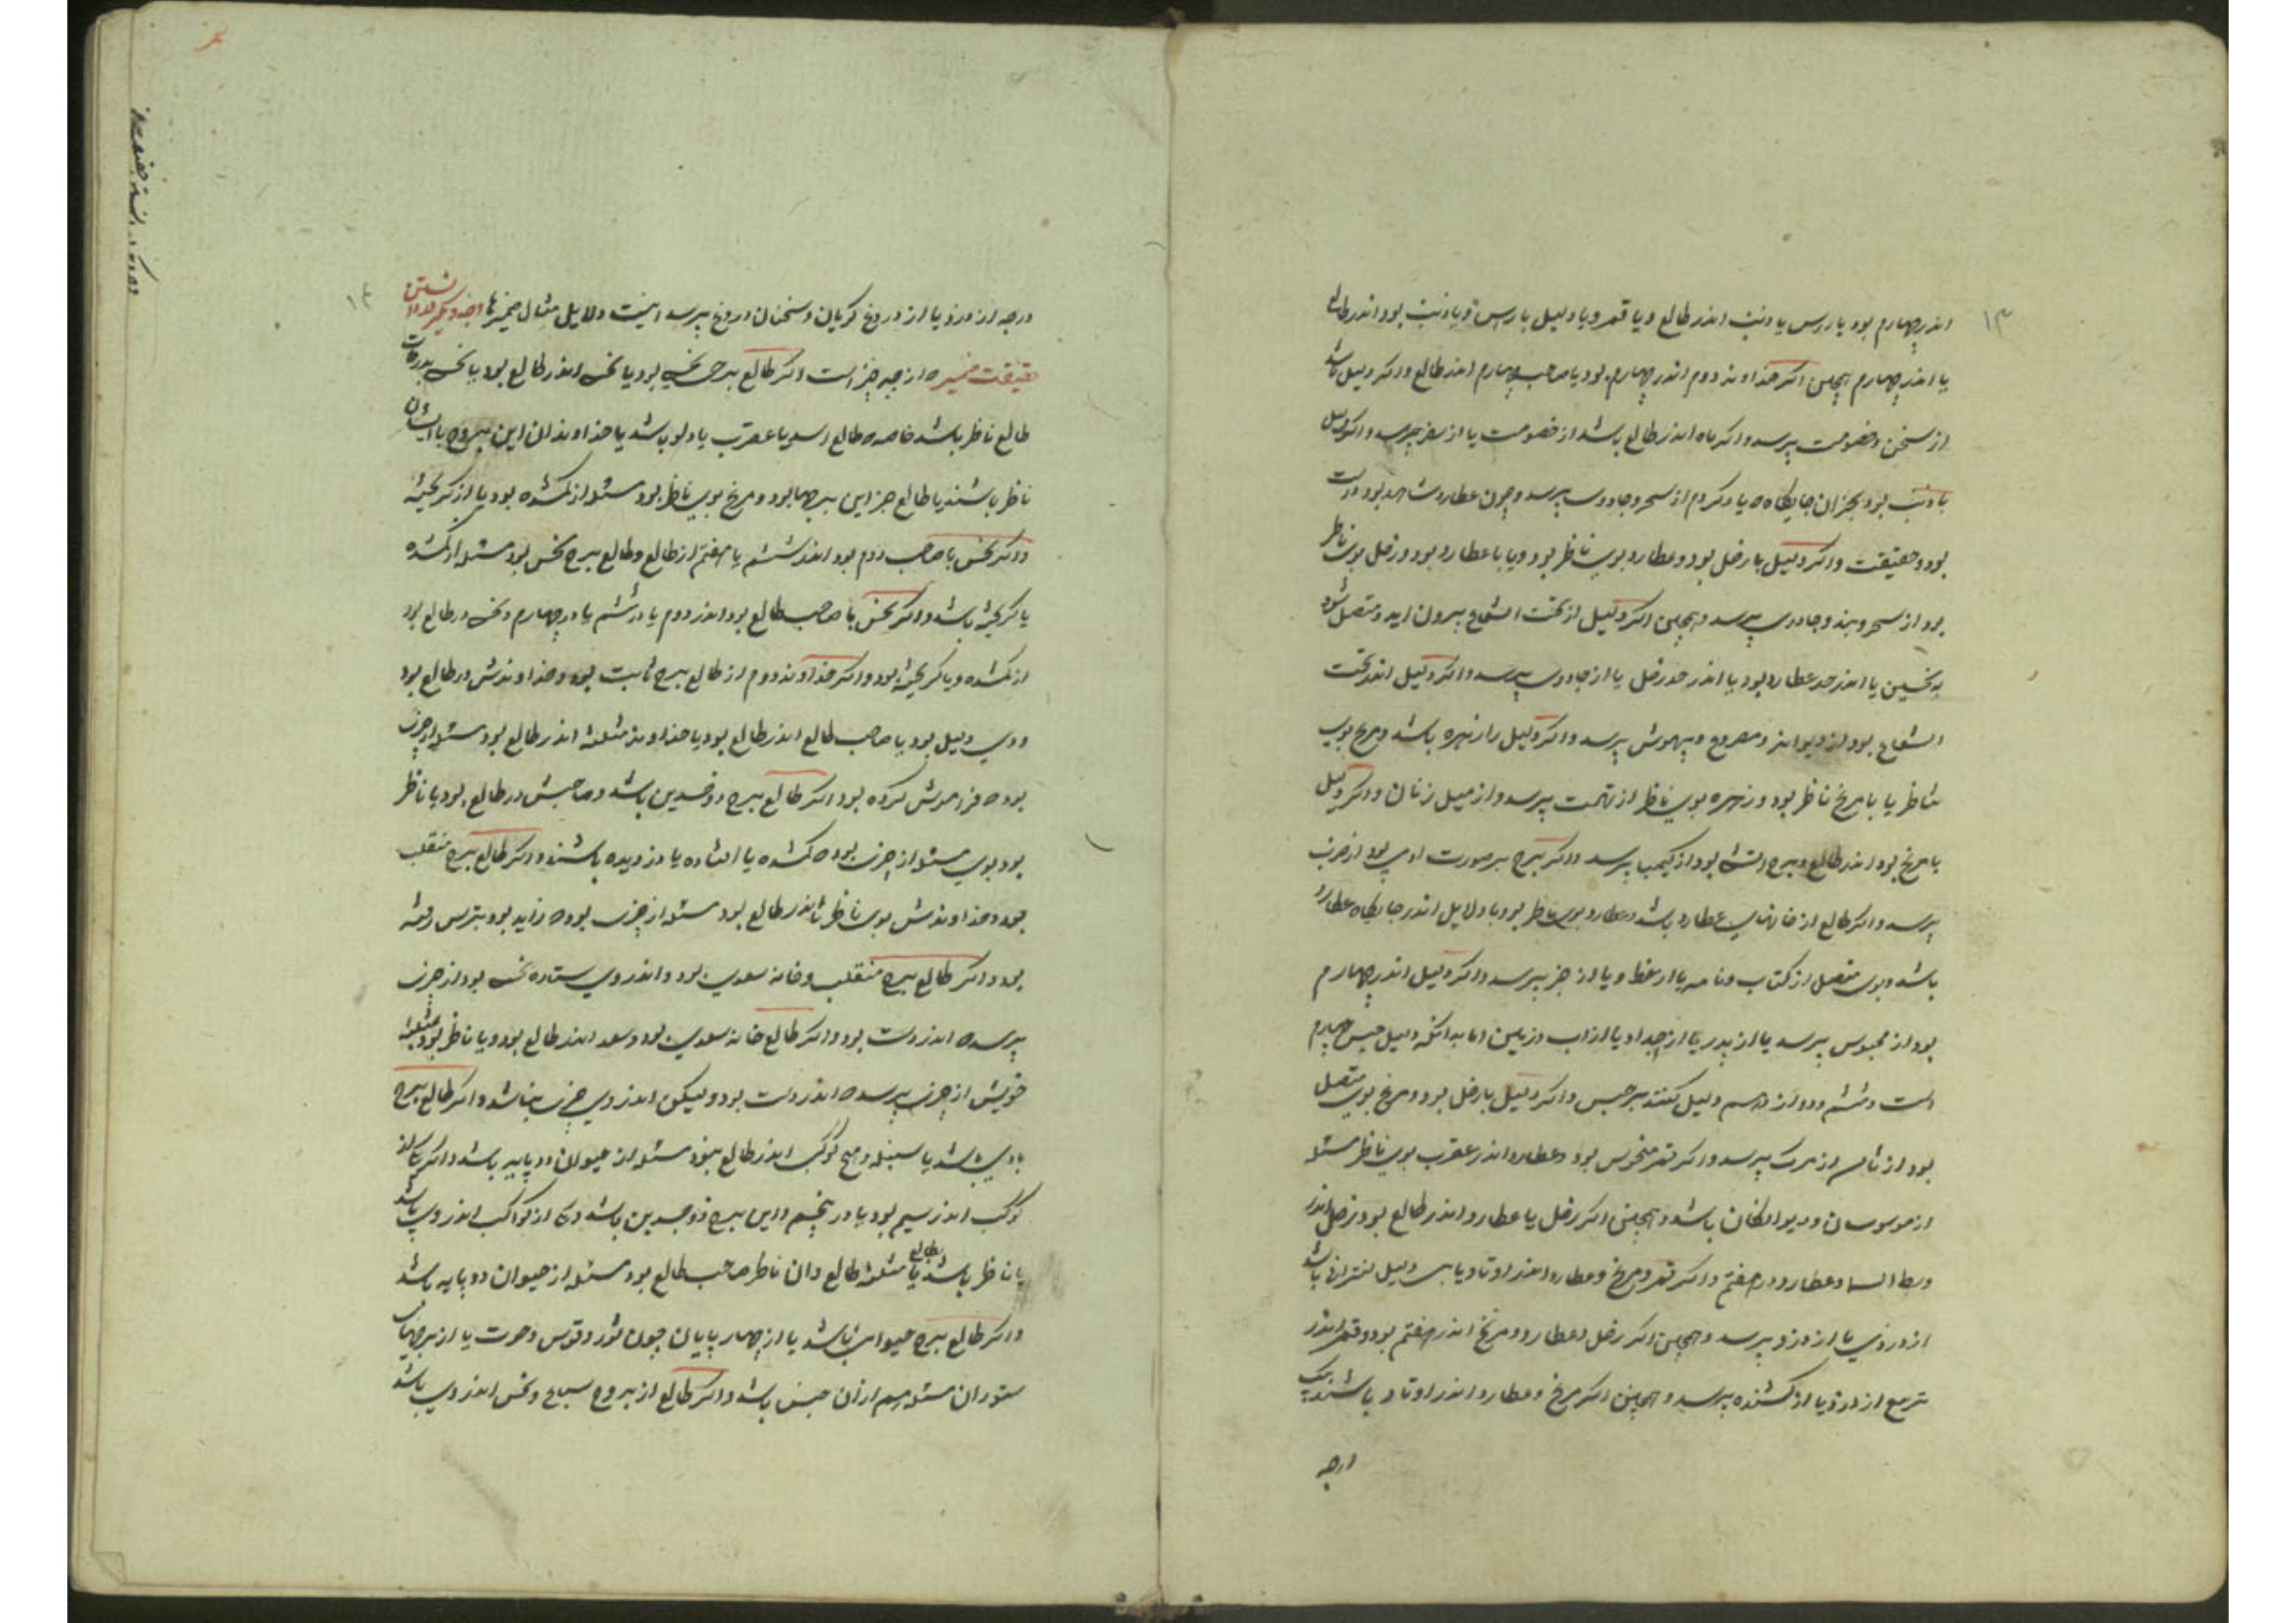 ۱۳
اندر چهارم بود یا رس یا ذنب اندر طالع و یا قمر و یا دلیل با رس و یا ذنب بود اندر طالع
یا اندر چهارم همچنین اکر خداوند دوم اندر چهارم بود یا صاحب چهارم اندر طالع واکر دلیل باشد
از سخن و خصومت پرسد واکر ماه اندر طالع باشد از خصومت یا از سفر پرسد واکر دلیل
با ذنب بود بجز ان جایکاه که یاد کردم از سحر و جادوی پرسد و چون عطارد شاهد بود درست
بود و حقیقت واکر دلیل با زحل بود و عطارد بوی ناظر بود و یا با عطارد بود و زحل بوی ناظر
بود از سحر و بند و جادوی پرسد و همچنین اکر دلیل از تحت الشعاع بیرون اید و متصل شود
به نحسین یا اندر حد عطارد بود یا اندر حد زحل یا از جادوی پرسد واکر دلیل اندر تحت
الشعاع بود از دیوانه و مصروع و بیهوش پرسد واکر دلیل را زهره باشد و مریخ بوی
ناظر یا با مریخ ناظر بود و زهره بوی ناظر از تهمت پرسد و از میل زنان واکر دلیل
با مریخ بود اندر طالع و برج اتشی بود از کیمیا پرسد واکر برج بر صورت ادمی بود از حرب
پرسد واکر طالع از خانهای عطارد باشد و عطارد بوی ناظر بود یا دلایل اندر جایکاه عطارد
باشد و بوی متصل از کتاب و نامه یا از خط و یا از خبر پرسد واکر دلیل اندر چهارم
بود از محبوس پرسد یا از پدر یا از اجداد یا از اب و زمین اما بدانکه دلیل حبس چهارم
است و ششم و دوازدهم دلیل کنند بر حبس واکر دلیل با زحل بود و مریخ بوی متصل
بود از از مرک پرسد واکر قمر منحوس بود و عطارد اندر عقرب بوی ناظر مسئله
از موسوسان و دیوانکان باشد و همچنین اکر زحل یا عطارد اندر طالع بود و زحل اندر
وسط السما و عطارد در هفتم واکر قمر و مریخ و عطارد اندر اوتاد دلیل باشد
از دزدی یا از دزد پرسد و همچنین اکر زحل و عطارد و مریخ اندر هفتم بود و قمر اندر
تربیع از دزد یا از کشنده پرسد و همچنین اکر مریخ و عطارد اندر اوتاد باشند بیک
درجه
۱۴
درجه از دزد یا از دروغ کویان و سخنان دروغ پرسد اینست دلایل مثال ضمیرها وجه دیکر اندر دانستن
حقیقت ضمیر که از چه چیز است اکر طالع برج نحس بود یا نحس اندر طالع بود یا نحس بدرجات
طالع ناظر باشد خاصه که طالع اسد یا عقرب یا دلو باشد یا خداوندان این بروج با ایشان
ناظر باشند یا طالع جز این برجها بود و مریخ بوی ناظر بود مسئله از کمشده بود یا از کریخته
واکر نحس با صاحب دوم بود اندر ششم یا هفتم از طالع و طالع برج نحس بود مسئله از کمشده
یا کریخته باشد واکر نحس با صاحب طالع بود اندر دوم یا در ششم یا در چهارم و نحس در طالع بود
از کمشده و یا کریخته بود واکر خداوند دوم از طالع برج ثابت بود و خداوندش در طالع بود
و وی دلیل بود یا صاحب طالع اندر طالع بود یا خداوند مثلثه اندر طالع بود مسئله از چیزی
بود که فراموش کرده بود اکر طالع برج ذوجسدین باشد و صاحبش در طالع بود یا ناظر
بود بوی مسئله از چیزی بود که کمشده یا افتاده یا دزدیده باشند واکر طالع برج منقلب
بود و خداوندش بوی ناظر یا اندر طالع بود مسئله از چیزی بود که زاید بود
بود واکر طالع برج منقلب و خانه سعدی بود و اندر وی ستاره نحس بود از چیزی
پرسد که اندر دست بود واکر طالع خانه سعدی بود و سعد اندر طالع بود و یا ناظر بود بمثلثه
خویش از چیزی پرسد که اندر دست بود ولیکن اندر وی چیزی نباشد واکر طالع برج
بادی باشد یا سنبله و هیچ کوکب اندر طالع نبود مسئله از حیوان دو پایه باشد واکر
کوکب اندر سیم بود یا در پنجم و این برج ذوجسدین باشد و از کواکب اندر وی باشد
یا ناظر باشد بطالع یا مثلثه طالع و ان ناظر صاحب طالع بود مسئله از حیوان دو پایه باشد
واکر طالع برج حیوانی باشد یا از چهار پایان چون ثور و قوس و حوت یا از برجهای
ستوران مسئله هم از ان جنس باشد واکر طالع از بروج سباع و نحس اندر وی باشد